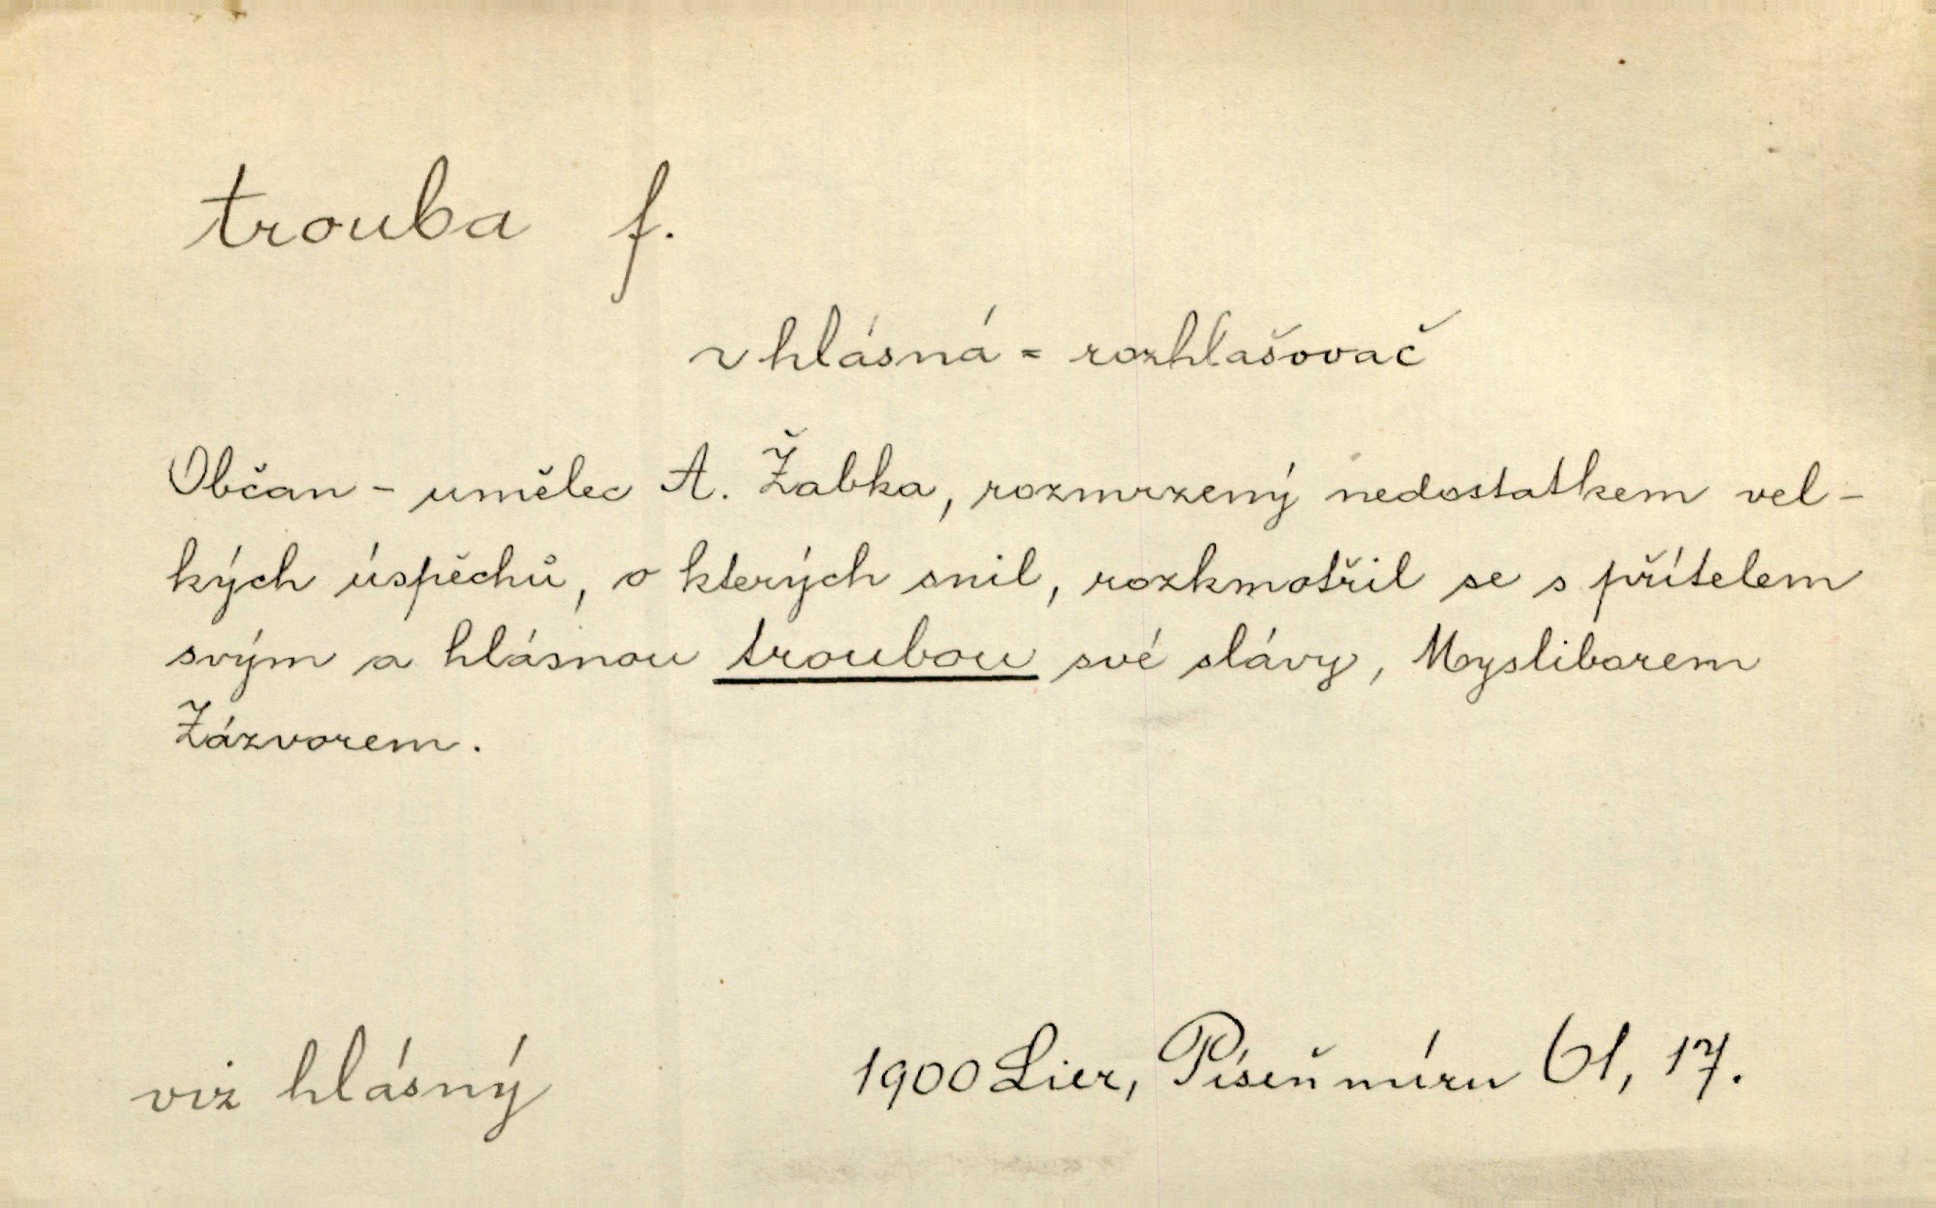 trouba f.
~ hlásná = rozhlašovač
Občan - umělec A. Žabka, rozmrzený nedostatkem vel-
kých úspěchů, o kterých snil, rozkmotřil se s přítelem
svým a hlásnou troubou své slávy, Mysliborem
Zázvorem.
viz hlásný
1900 Lier, Píseň míru 61, 17.